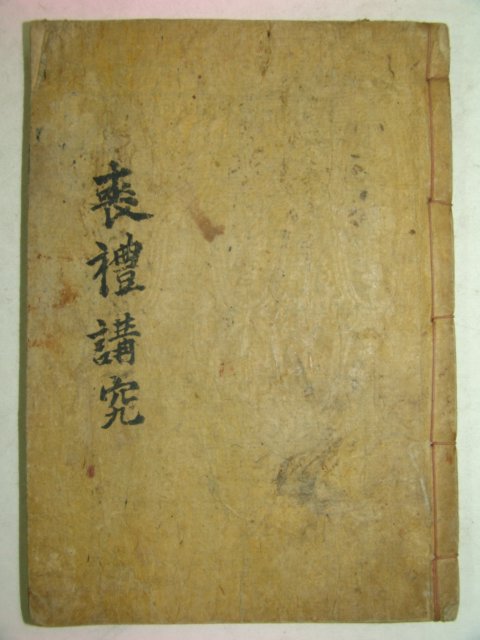 喪禮講究